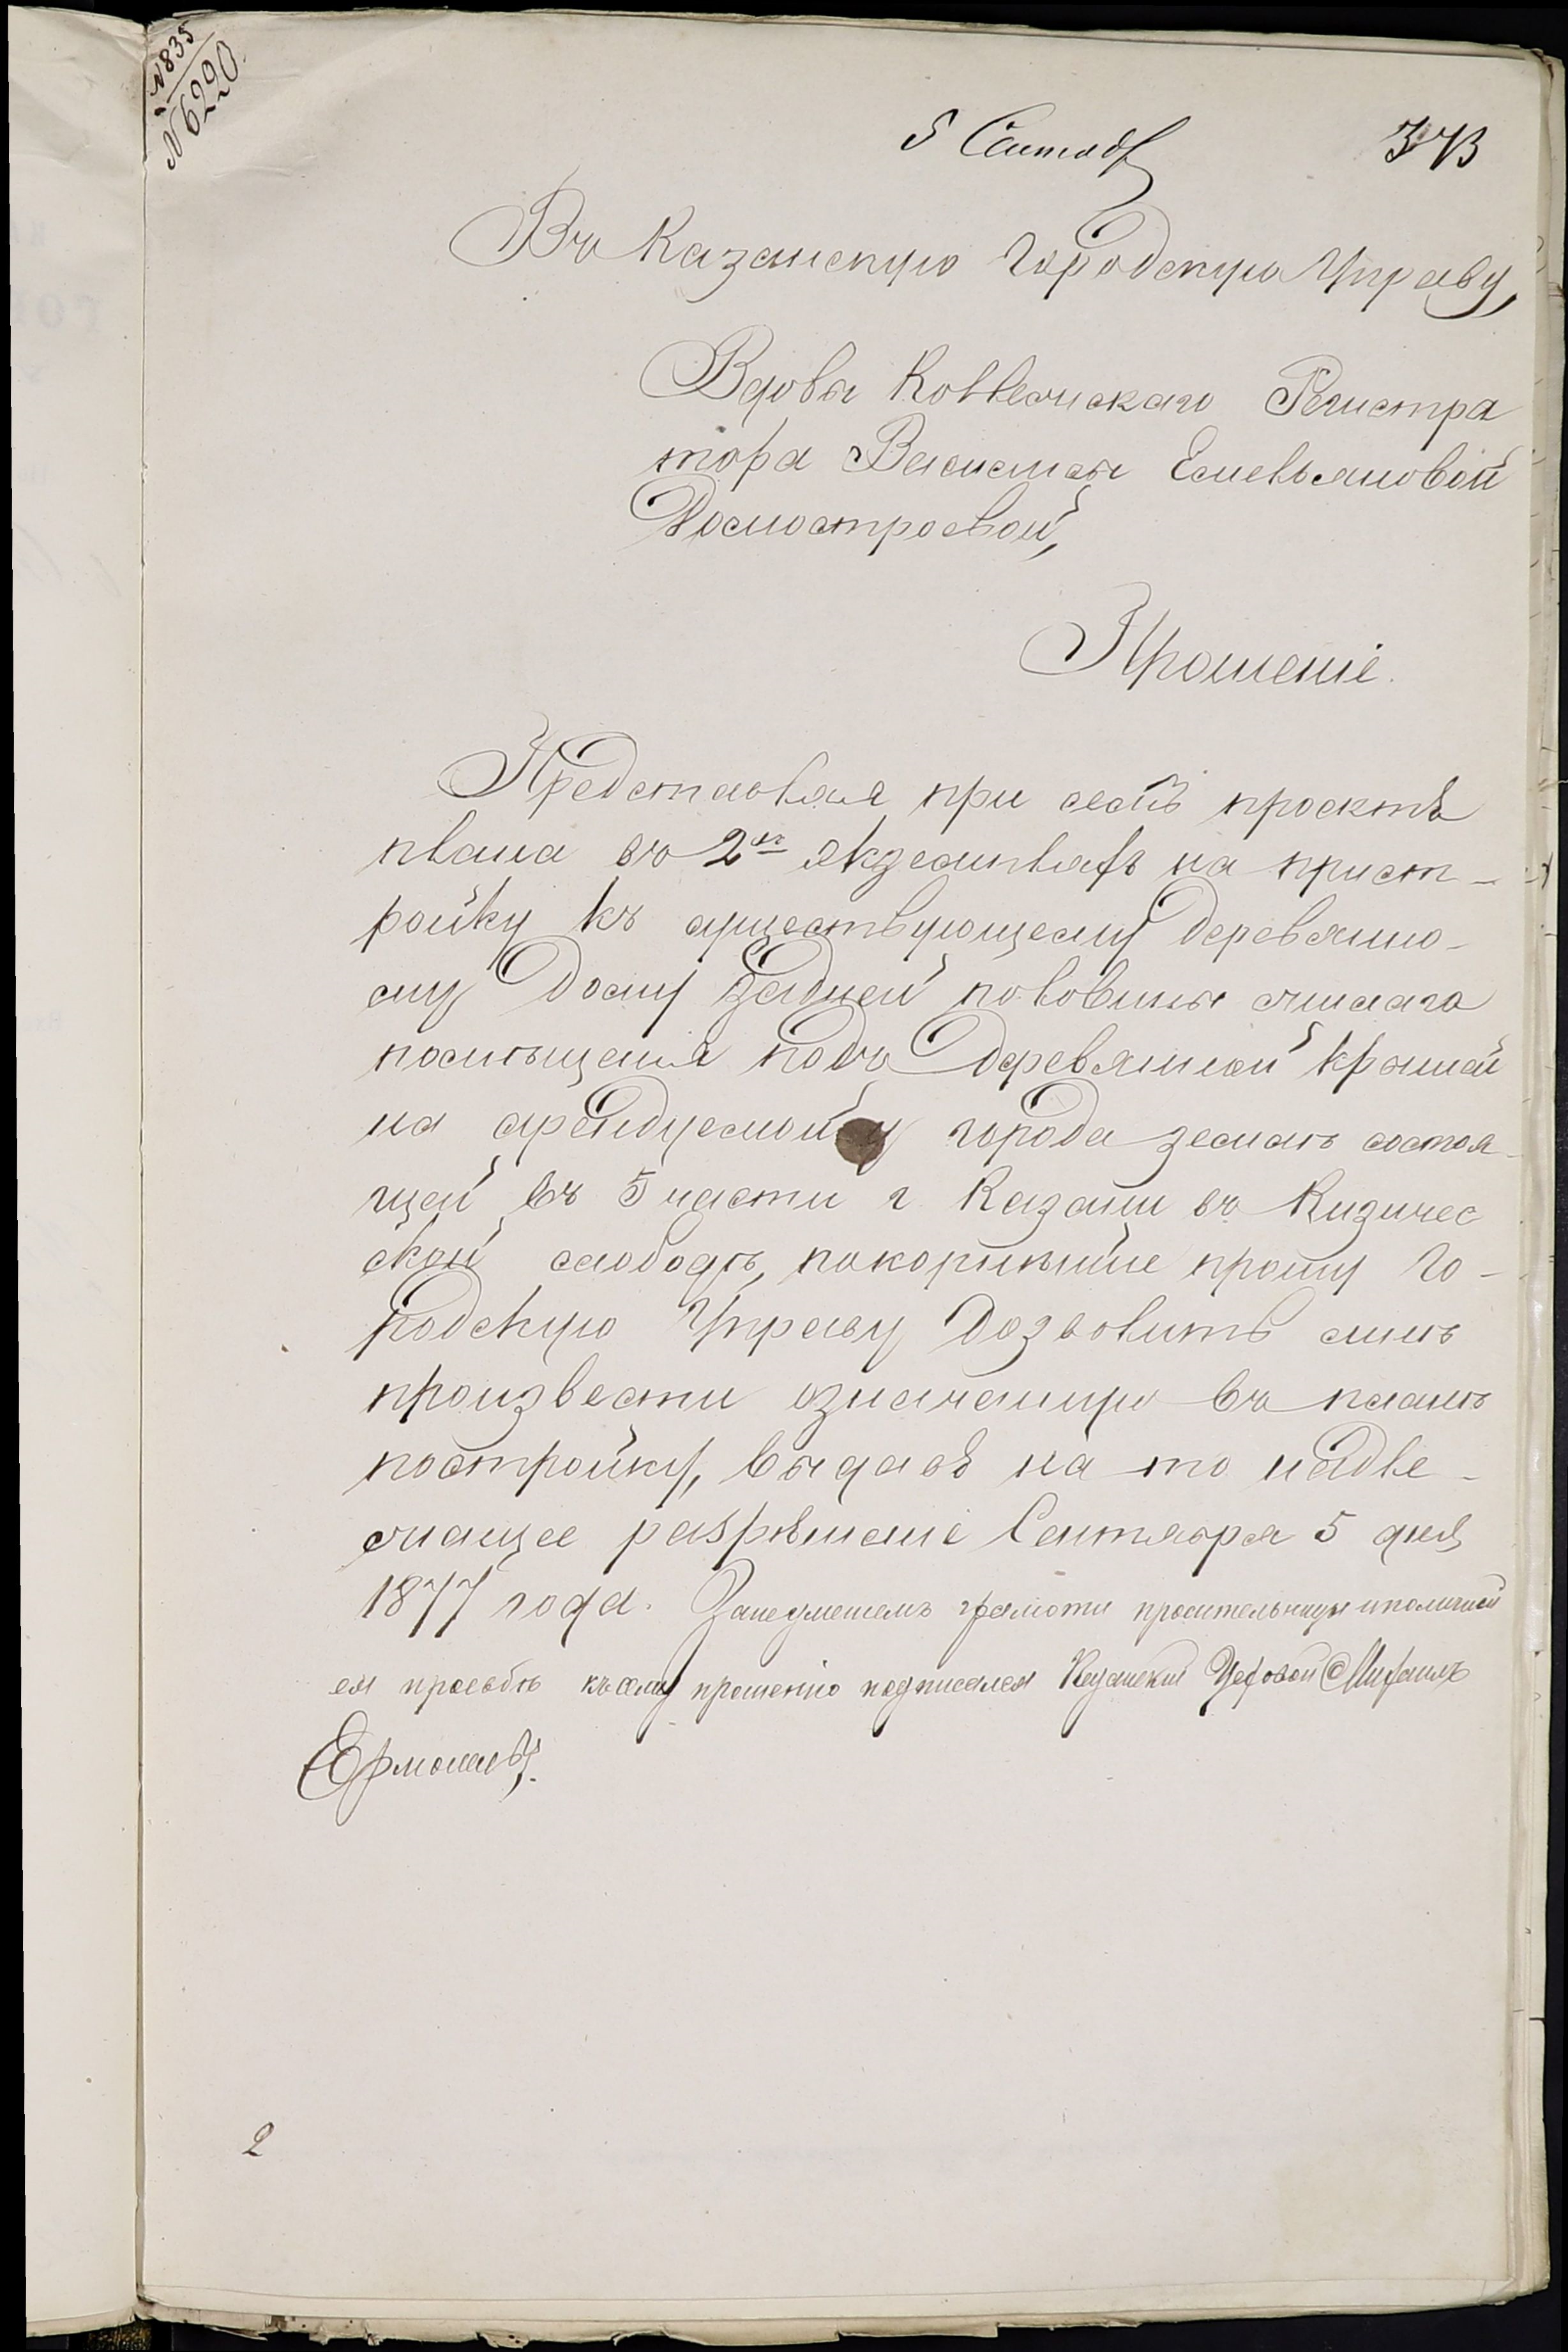 № 835
№ 6220
5 Сентяб
373
Въ Казанскую Городскую Управу,
Вдовы Коллежскаго Регистра
тора Василисы Емельяновой
Домостроевой,
Прошеніе.
Представляя при семъ проектъ
плана въ 2хъ экземплярѣ на прист-
ройку къ существующему деревянно-
му дому задней половины жилаго
помѣщенія подъ деревянной крышей
на арендуемой у города землѣ состоя-
щей въ 5 части г. Казани въ Кизичес
ской слободѣ, покорнѣйше прошу Го-
родскую Управу дозволить мнѣ
произвести означенную въ планѣ
постройку, выдавъ на то надле-
жащее разрѣшеніе Сентября 5 дня
1877 года. Занеуменіемъ грамоти просительницы иполичной
ея прозьбѣ къ сему прошенію подписался Казанскій Цеховой Михаилъ
Ермолаевъ.
2